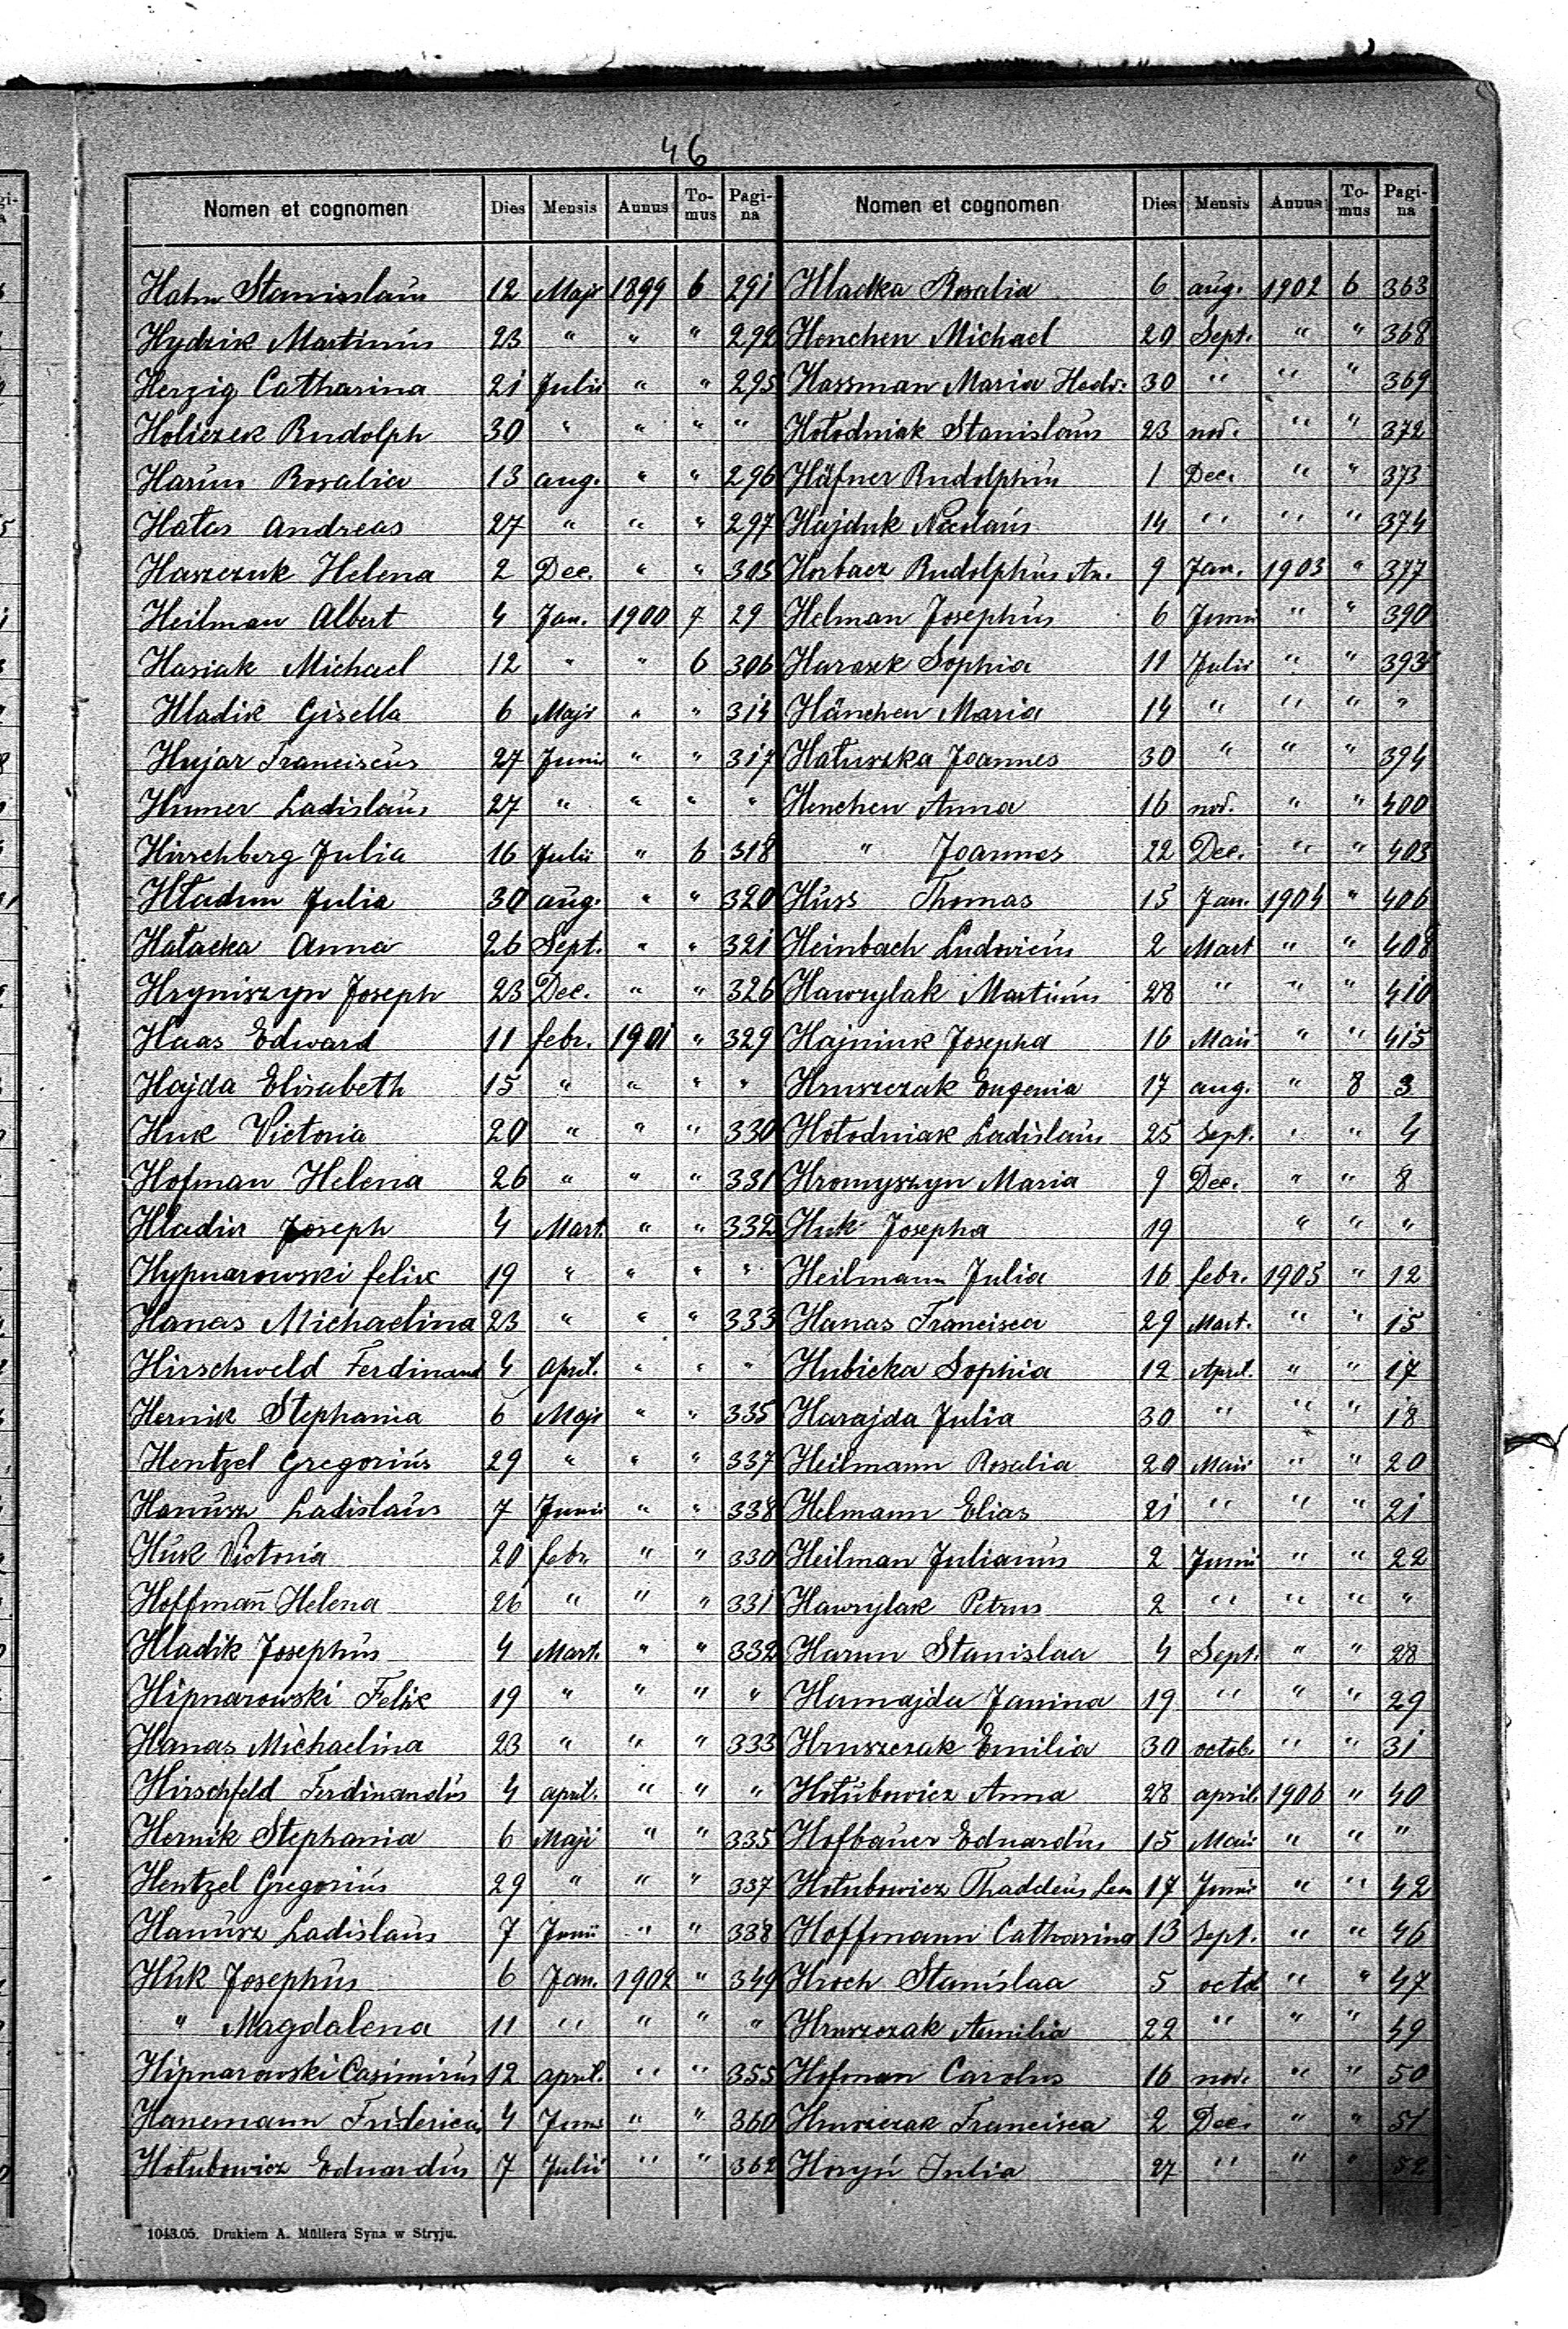 46
Nomen et cognomen Dies Mensis Annus To-mus Pagi-na
Hahn Stanislaus 12 Maji 1899 6 291
Hydzik Martinus 23 " " " 292
Herzig Catharina 21 Julii " " 295
Holiczek Rudolph 30 " " " "
Harun Rosalia 13 aug. " " 296
Hałas Andreas 27 " " " 297
Haszczuk Helena 2 Dec. " " 303
Heilman Albert 4 Jan. 1900 7 29
Hasiak Michael 12 " " 6 306
Hladik Gisella 6 Maji " " 314
Hujar Franciscus 27 Junii " " 317
Humer Ladislaus 27 " " " "
Hirschberg Julia 16 Julii " 6 318
Hładun Julia 30 aug. " " 320
Hałacka Anna 26 Sept. " " 321
Hryniszyn Joseph 23 Dec. " " 326
Haas Edward 11 febr. 1901 " 329
Hajda Elisabeth 15 " " " "
Huk Victoria 20 " " " 330
Hofman Helena 26 " " " 331
Hladik Joseph 4 Mart. " " 332
Hypnarowski felix 19 " " " "
Hanas Michaelina 23 " " " 333
Hirschweld Ferdinand 4 April. " " "
Hernik Stephania 6 Maji " " 335
Hentzel Gregorius 29 " " " 337
Hanusz Ladislaus 7 Junii " " 338
Huk Victoria 20 febr. " " 330
Hoffmann Helena 26 " " " 331
Hladik Josephus 4 Mart. " " 332
Hipnarowski Felix 19 " " " "
Hanas Michaelina 23 " " " 333
Hirschfeld Ferdinandus 4 april. " " "
Hernik Stephania 6 Maji " " 335
Hentzel Gregorius 29 " " " 337
Hanusz Ladislaus 7 Junii " " 338
Huk Josephus 6 Jan. 1902 " 349
" Magdalena 11 " " " "
Hipnarowski Casimirus 12 april. " " 355
Hanemann Fridericus 4 Junii " " 360
Hołubowicz Eduardus 7 Julii " " 362
Nomen et cognomen Dies Mensis Annus To-mus Pagi-na
Hladka Rosalia 6 aug. 1902 6 363
Henchen Michael 20 Sept. " " 368
Hassman Maria Hedv. 30 " " " 369
Hołodniak Stanislaus 23 nov. " " 372
Häfner Rudolphus 1 Dec. " " 373
Hajduk Nicolaus 14 " " " 374
Horbacz Rudolphus An. 9 Jan. 1903 " 377
Helman Josephus 6 Junii " " 390
Haraszk Sophia 11 Julii " " 393
Hänchen Maria 14 " " " "
Hałuszka Joannes 30 " " " 394
Henchen Anna 16 nov. " " 400
" Joannes 22 Dec. " " 403
Huss Thomas 15 Jan. 1904 " 406
Heinbach Ludovicus 2 Mart " " 408
Hawrylak Martinus 28 " " " 410
Hajniuk Josepha 16 Maii " " 415
Hruszczak Eugenia 17 aug. " 8 3
Hołodniak Ladislaus 25 Sept. " " 4
Hromyszyn Maria 9 Dec. " " 8
Huk Josepha 19 " " "
Heilmann Julia 16 febr. 1905 " 12
Hanas Francisca 29 Mart. " " 15
Hubicka Sophia 12 April. " " 17
Harajda Julia 30 " " " 18
Heilmann Rosalia 20 Maii " " 20
Helmann Elias 21 " " " 21
Heilman Julianus 2 Junii " " 22
Hawrylak Petrus 2 " " " "
Harun Stanislaa 4 Sept. " " 28
Hamajda Janina 19 " " " 29
Hruszczak Emilia 30 octob. " " 31
Hołubowicz Anna 28 april. 1906 " 40
Hofbauer Eduardus 15 Maii " " "
Hołubowicz Thaddeus Leo 17 Junii " " 42
Hoffmann Catharina 13 Sept. " " 46
Hroch Stanislaa 5 octob " " 47
Hruszczak Aemilia 22 " " " 49
Hofman Carolus 16 nov. " " 50
Hruszczak Francisca 2 Dec. " " 51
Horyń Julia 27 " " " 52
1043.05. Drukiem A. Müllera Syna w Stryju.